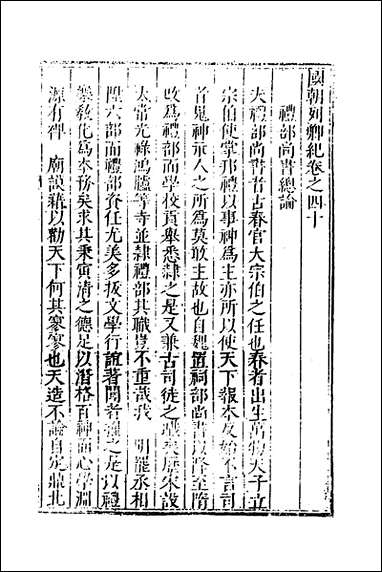 國朝列卿紀卷之四十
禮部尚書總論
夫禮部尚書者古春官大宗伯之任也春者出生萬物天子立
宗伯使掌邦禮以事神為主亦所以使天下報本反始不言司
首鬼神示人之所為莫敢主故也自魏置祠部尚書以降至隋
改為禮部而學校貢舉悉隸之是又兼古司徒之職矣唐宋設
太常光祿鴻臚等寺並隸禮部其職豈不重哉我 明罷丞相
陞六部而禮部資任尤美多拔文學行誼著聞者 之是以禮
樂敎化為本務矣求其秉寅清之德足以潛格百神而心學淵
源有裨 廟謨藉以勸天下何其寥寥也天造不論自定鼎北